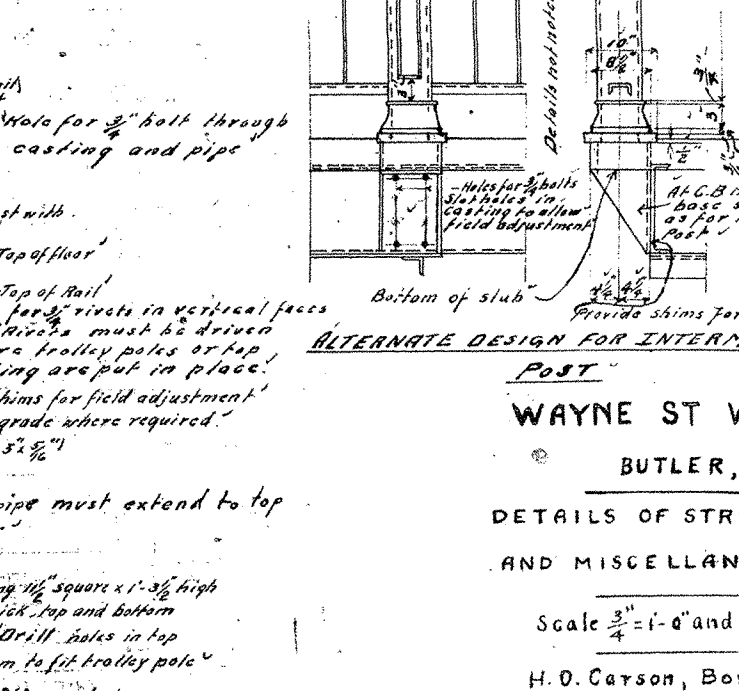 Hole for 3/4" bolt through
casting and pipe
st with
Top of floor
Top of Rail
for 3/4" rivets in vertical faces
Rivets must be driven
re trolley poles or top
ing are put in place.
hims for field adjustment
grade where required.
5" x 5/16"
pipe must extend to top
ng 11 1/2" square x 1'-3 1/2" high
ick, top and bottom
Drill holes in top
m to fit trolley pole
3"
Holes for 3/4" bolts
Slot holes in
casting to allow
field adjustment
Bottom of slab
Details not note
10"
8 1/2"
3"
1/2"
At C.B.
base s
as for
Post
4 1/4" 4 1/4"
Provide shims for
ALTERNATE DESIGN FOR INTERM
POST
WAYNE ST V
BUTLER,
DETAILS OF STR
AND MISCELLAN
Scale 3/4" = 1'-0" and
H.O. Carson, Bo